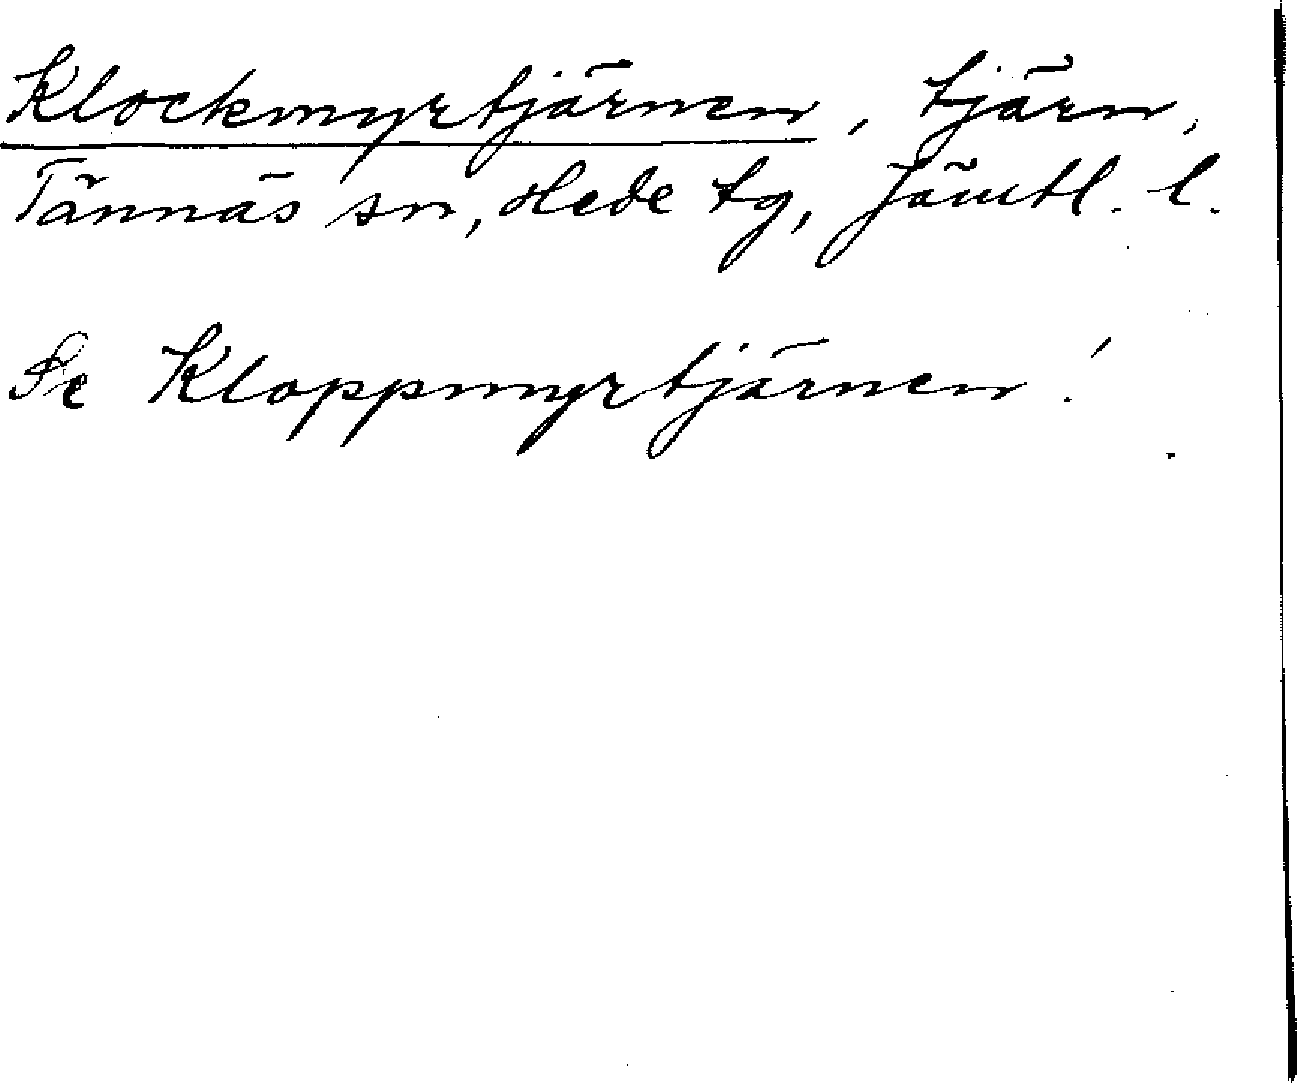 Klockmyrtjärnen, tjärn,
Tännäs sn, Hede tg, Jämtl. l.
Se Kloppmyrtjärnen!